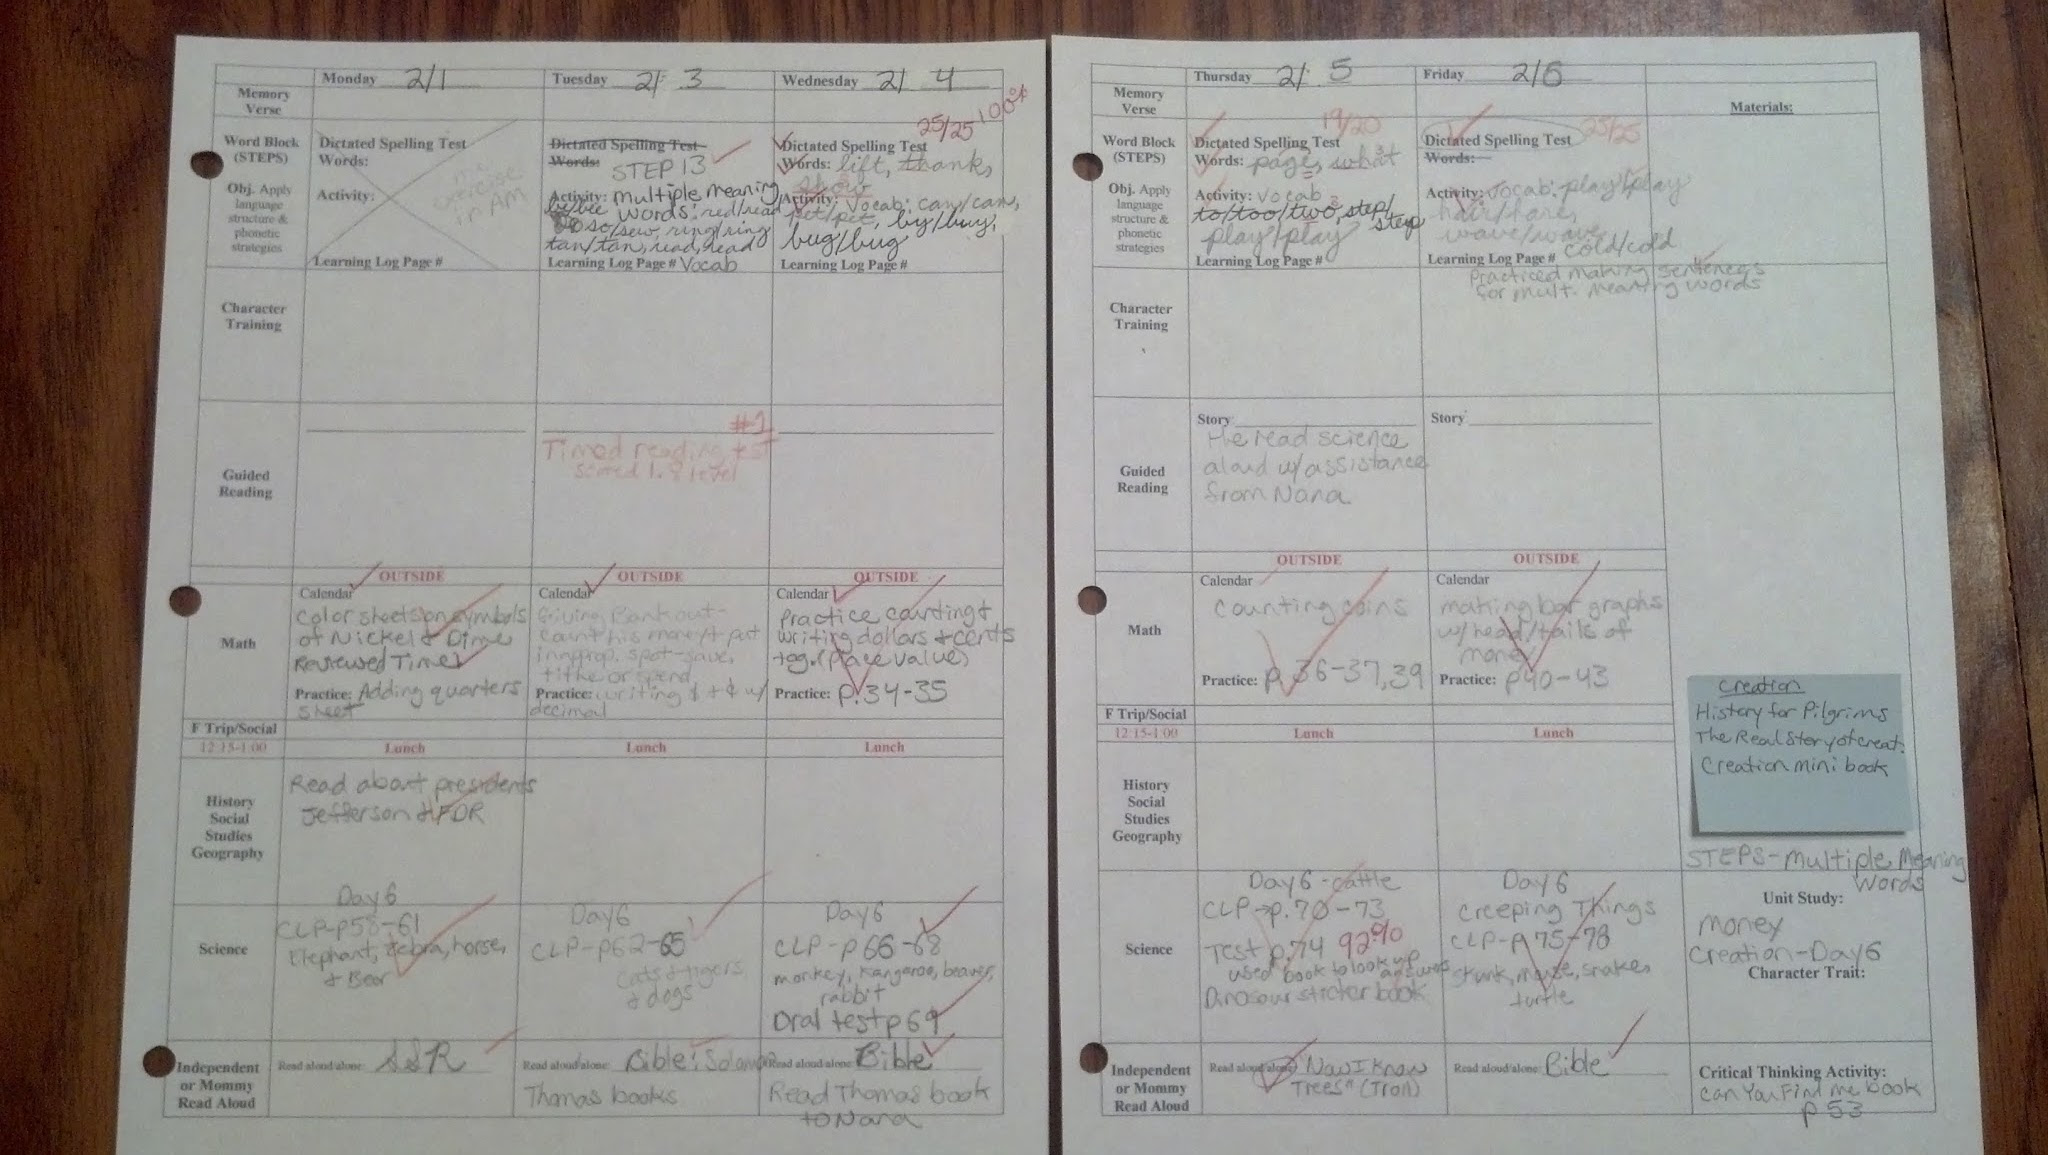 Monday 2/1
Tuesday 2/ 3
Wednesday 2/ 4
Memory
Verse
Word Block
(STEPS)
Obj. Apply
language
structure &
phonetic
strategies
Dictated Spelling Test
Words:
Activity:
exercise
in AM
Learning Log Page #
Dictated Spelling Test
Words: STEP 13
Activity: multiple meaning
by/bee words: red/read
so/sew, ring/ring
tan/tan, read, read
Learning Log Page # Vocab
25/25 100%
Dictated Spelling Test
Words: lift, thanks,
show
Activity: Vocab: can/can,
pet/pet, by/buy,
bug/bug
Learning Log Page #
Character
Training
Guided
Reading
#1
Timed reading test
scored 1.8 level
OUTSIDE
OUTSIDE
OUTSIDE
Math
Calendar
Color sheets on symbols
of Nickel & Dime
Reviewed Time
Practice: Adding quarters
sheet
Calendar
Giving Bank out-
count his money & put
in approp. spot-save,
tithe or spend
Practice: writing $ + ¢ w/
decimal
Calendar
Practice counting &
writing dollars & cents
tog. (place value)
Practice: p. 34-35
F Trip/Social
12:15-1:00
Lunch
Lunch
Lunch
History
Social
Studies
Geography
Read about presidents
Jefferson & FDR
Science
Day 6
CLP-p58-61
Elephant, zebra, horse,
& Bear
Day 6
CLP-p62-65
cats & tigers,
& dogs
Day 6
CLP-p66-68
monkey, kangaroo, beaver,
rabbit
Oral test p 69
Independent
or Mommy
Read Aloud
Read aloud/alone: SSR
Read aloud/alone: Bible:
Thomas books
Read aloud/alone: Bible
Read Thomas book
to Nana
Thursday 2/ 5
Friday 2/6
Memory
Verse
Materials:
Word Block
(STEPS)
Obj. Apply
language
structure &
phonetic
strategies
19/20
Dictated Spelling Test
Words: page, what
Activity: Vocab
to/too/two, step/
step
play/play
Learning Log Page #
25/25
Dictated Spelling Test
Words:
Activity: Vocab: play/play
hair/hare,
wave/wave,
cold/cold
Learning Log Page #
Practiced making sentences
for mult. meaning words
Character
Training
Guided
Reading
Story:
He read science
aloud w/assistance
from Nana
Story:
OUTSIDE
OUTSIDE
Math
Calendar
counting coins
Practice: p. 36-37, 39
Calendar
making bar graphs
w/head/tails of
money
Practice: p40-43
F Trip/Social
12:15-1:00
Lunch
Lunch
Creation
History for Pilgrims
The Real Story of Creat.
Creation mini book
History
Social
Studies
Geography
STEPS-Multiple Meaning
Words
Science
Day 6 - cattle
CLP→p. 70-73
Test p. 74 92%
used book to look up
answers
Dinosaur sticker book
Day 6
Creeping Things
CLP-p 75-78
skunk, mouse, snake,
turtle
Unit Study:
Money
Creation-Day 6
Character Trait:
Independent
or Mommy
Read Aloud
Read aloud/alone: "Now I Know
Trees" (Troll)
Read aloud/alone: Bible
Critical Thinking Activity:
Can You Find Me book
p 53